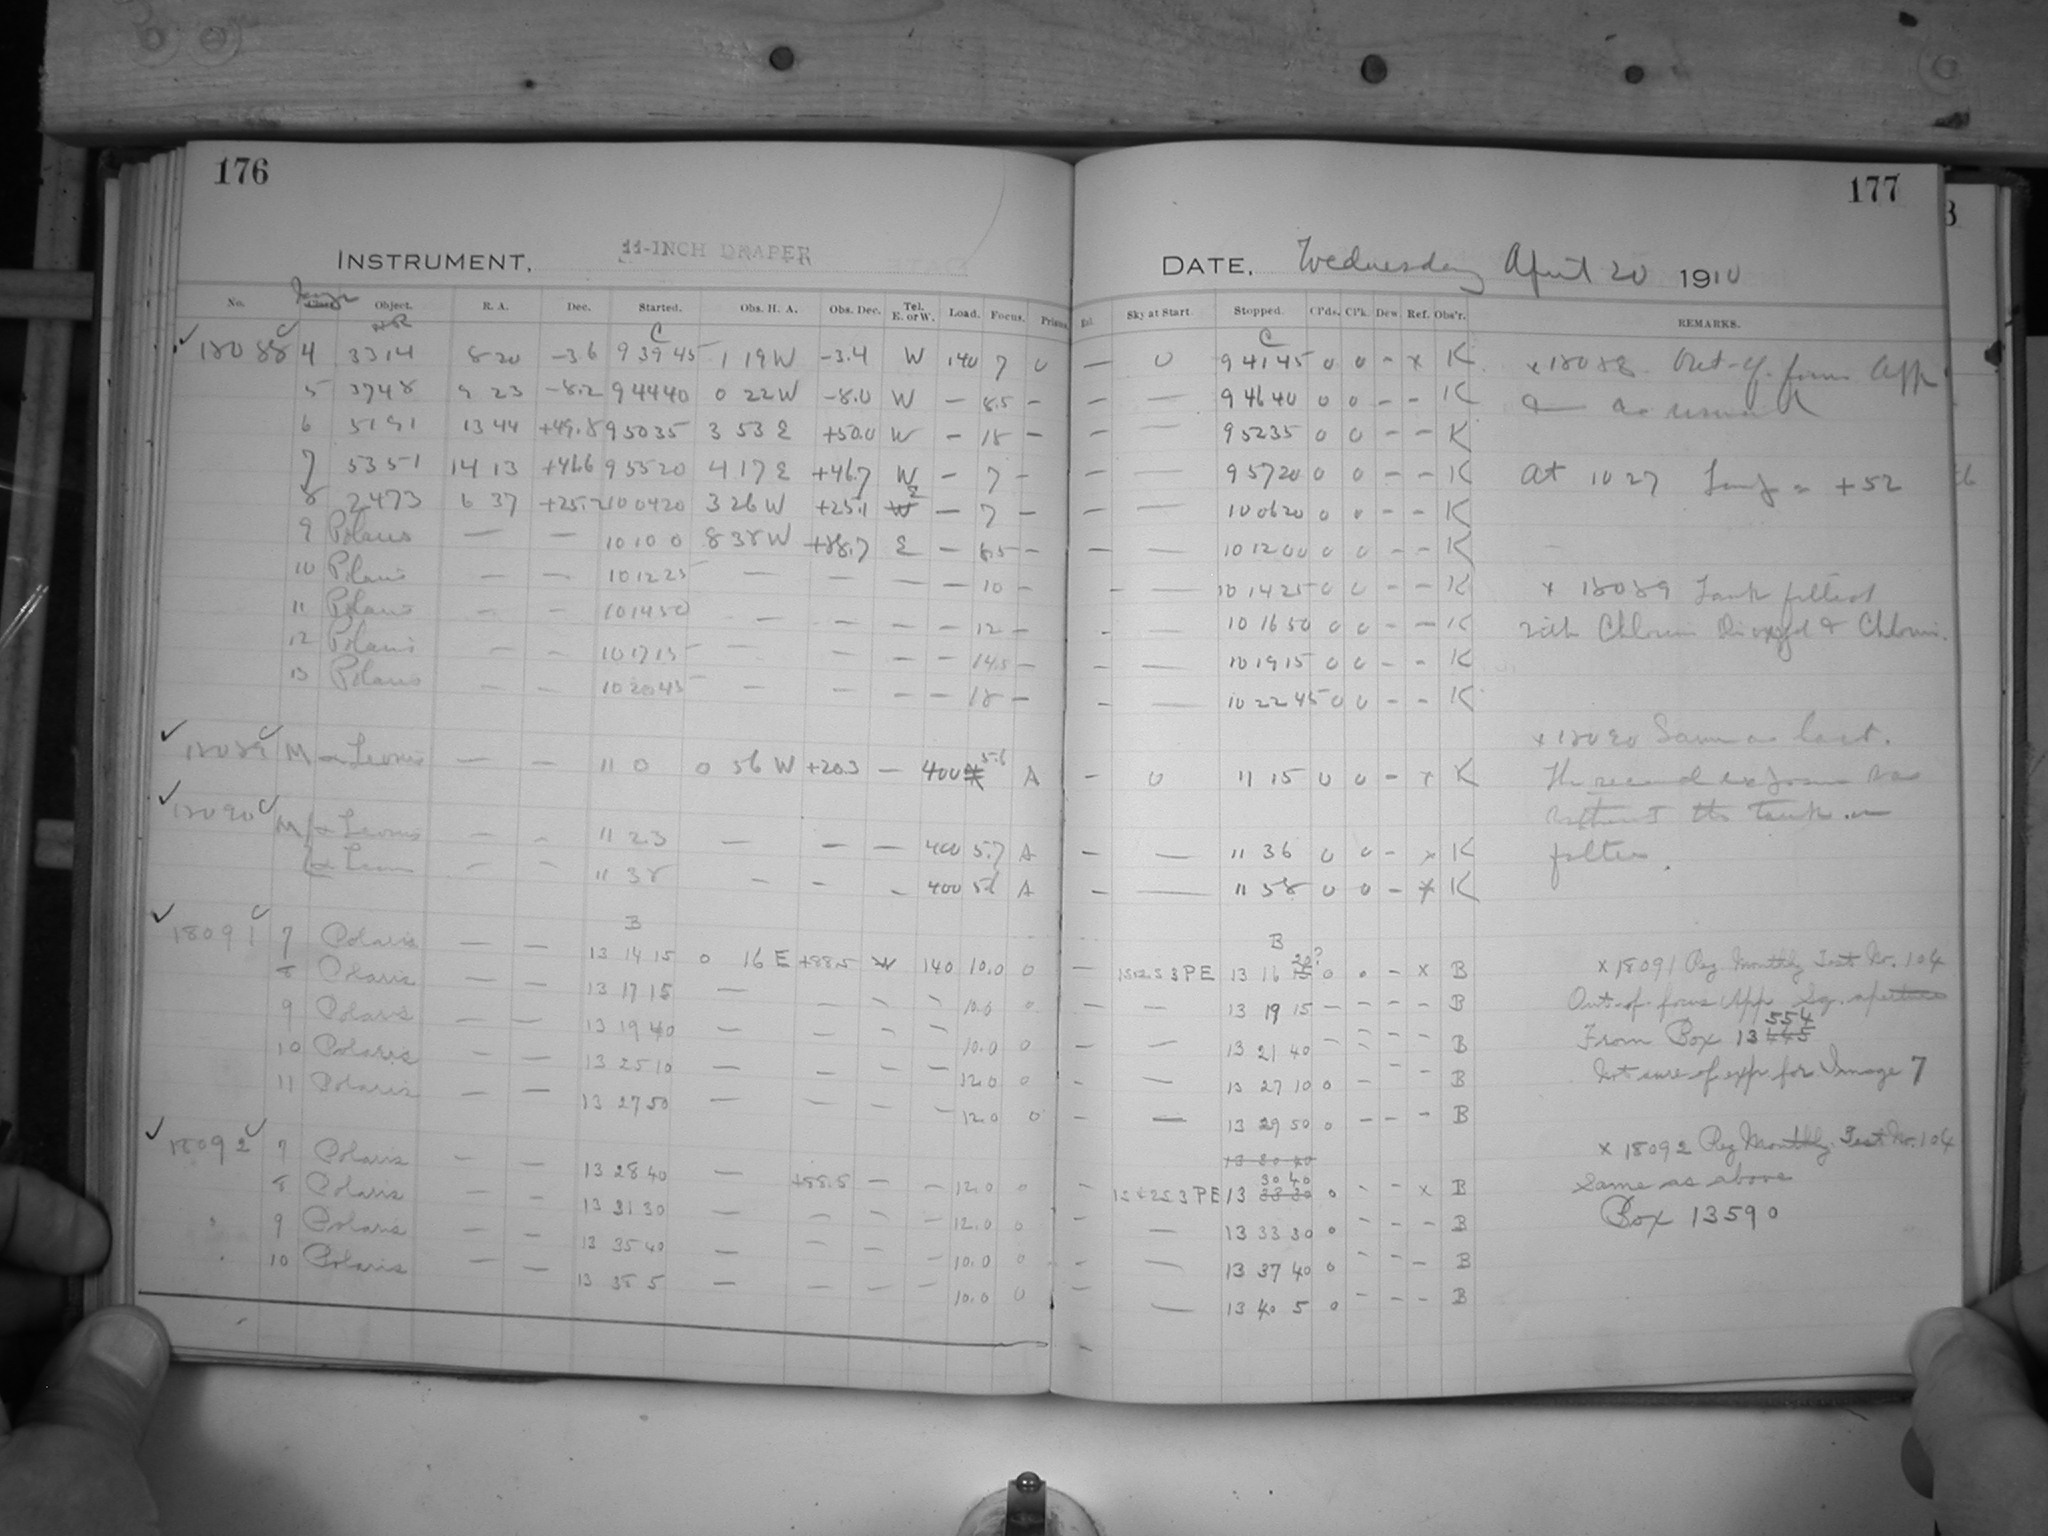 176
INSTRUMENT. 11-INCH DRAPER
No. Image Object. R. A. Dec. Started. Obs. H. A. Obs. Dec. Tel. E. or W. Load. Focus. Prisms.
HR C
18088 4 3314 8 20 -3.6 9 39 45 1 19 W -3.4 W 140 7 0
5 3748 9 23 -8.2 9 44 40 0 22 W -8.0 W - 8.5 -
6 5191 13 44 +49.8 9 50 35 3 53 E +50.0 W - 18 -
7 5351 14 13 +46.6 9 55 20 4 17 E +46.7 W - 7 -
8 2473 6 37 +25.2 10 04 20 3 26 W +25.1 W E - 7 -
9 Polaris - - 10 10 0 8 38 W +88.7 E - 8.5 -
10 Polaris - - 10 12 25 - - - - 10 -
11 Polaris - - 10 14 50 - - - - 12 -
12 Polaris - - 10 17 15 - - - - 14.5 -
13 Polaris - - 10 20 45 - - - - 18 -
18089 M α Leonis - - 11 0 0 56 W +20.3 - 400 5.6 A
18090 M α Leonis - - 11 23 - - - 400 5.7 A
α Leon - - 11 38 - - - 400 5.6 A
B
18091 7 Polaris - - 13 14 15 0 16 E +88.5 W 140 10.0 0
8 Polaris - - 13 17 15 - - - - 10.0 0
9 Polaris - - 13 19 40 - - - - 10.0 0
10 Polaris - - 13 25 10 - - - - 12.0 0
11 Polaris - - 13 27 50 - - - - 12.0 0
18092 7 Polaris - - 13 28 40 - +88.5 - - 12.0 0
8 Polaris - - 13 31 30 - - - - 12.0 0
9 Polaris - - 13 35 40 - - - - 10.0 0
10 Polaris - - 13 38 5 - - - - 10.0 0
177
DATE. Wednesday April 20 1910
Sky at Start. Stopped. Cl'ds. Cl'k. Dew. Ref. Obs'r. REMARKS.
C
- 0 9 41 45 0 0 - x K x 18088. Out-of-focus App
- - 9 46 40 0 0 - - K as usual
- - 9 52 35 0 0 - - K
- - 9 57 20 0 0 - - K At 10 27 Temp = +52
- - 10 06 20 0 0 - - K
- - 10 12 00 0 0 - - K
- - 10 14 25 0 0 - - K x 18089 Tank filled
- - 10 16 50 0 0 - - K with Chlorin Dioxyd & Chlorin.
- - 10 19 15 0 0 - - K
- - 10 22 45 0 0 - - K
x 18090 Same as last.
- 0 11 15 0 0 - x K The second exposure was
without the tank or
- - 11 36 0 0 - x K filter.
- - 11 58 0 0 - x K
B
- 1S12S3PE 13 16 15 20? 0 0 - x B x 18091 Reg Monthly Test No. 104
- - 13 19 15 - - - - B Out-of-focus App Sq. aperture
- - 13 21 40 - - - - B From Box 13 445 554
- - 13 27 10 0 - - - B Not sure of exp. for Image 7
- - 13 29 50 0 - - - B
13 30 40 x 18092 Reg Monthly Test No. 104
- 13 33 30 30 40 0 - - x B Same as above
- - 13 33 30 0 - - - B Box 13590
- - 13 37 40 0 - - - B
- 13 40 5 0 - - - B